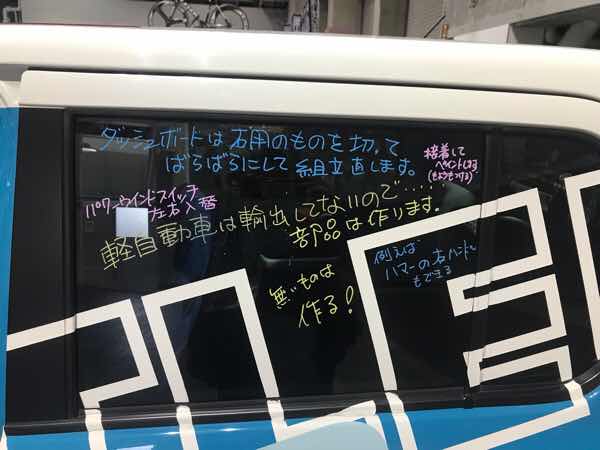 ダッシュボードは右用のものを切って
ばらばらにして組立直します。
接着して
ペイントします
パワーウインドスイッチ
左右入替
軽自動車は輸出してないので‥‥‥
部品は作ります。
無いものは
作る!
例えば
ハマーの右ハンドル
もできる